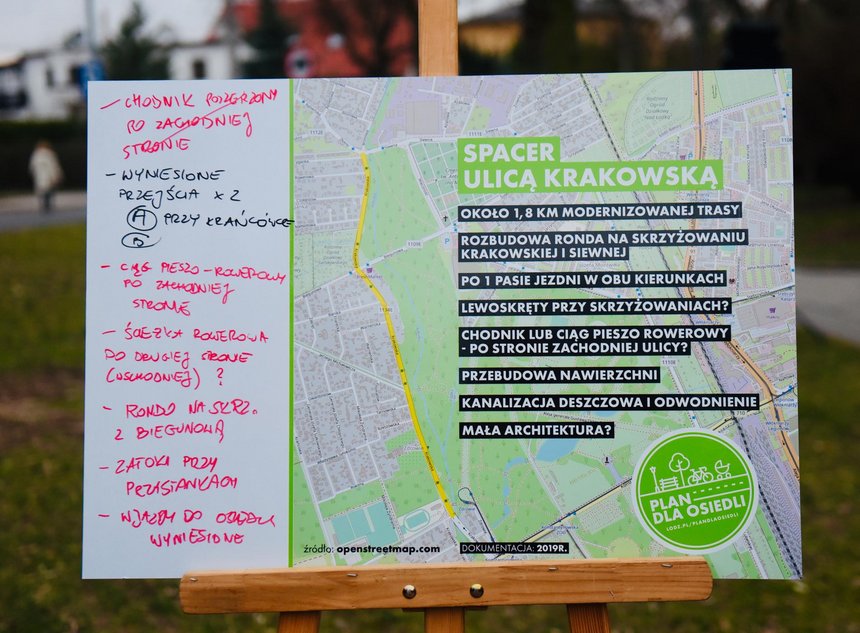 - CHODNIK POSZERZONY
PO ZACHODNIEJ
STRONIE
- WYNIESIONE
PRZEJŚCIA x 2
A PRZY KRAŃCÓWCE
B
- CIĄG PIESZO-ROWEROWY
PO ZACHODNIEJ
STRONIE
- ŚCIEŻKA ROWEROWA
PO DRUGIEJ STRONIE
(WSCHODNIEJ) ?
- RONDO NA SKRZ.
Z BIEGUNOWĄ
- ZATOKI PRZY
PRZYSTANKACH
- WJAZDY DO
WYNIESIONE
SPACER
ULICĄ KRAKOWSKĄ
OKOŁO 1,8 KM MODERNIZOWANEJ TRASY
ROZBUDOWA RONDA NA SKRZYŻOWANIU
KRAKOWSKIEJ I SIEWNEJ
PO 1 PASIE JEZDNI W OBU KIERUNKACH
LEWOSKRĘTY PRZY SKRZYŻOWANIACH?
CHODNIK LUB CIĄG PIESZO ROWEROWY
- PO STRONIE ZACHODNIEJ ULICY?
PRZEBUDOWA NAWIERZCHNI
KANALIZACJA DESZCZOWA I ODWODNIENIE
MAŁA ARCHITEKTURA?
PLAN
DLA OSIEDLI
LODZ.PL/PLANDLAOSIEDLI
źródło: openstreetmap.com
DOKUMENTACJA: 2019R.